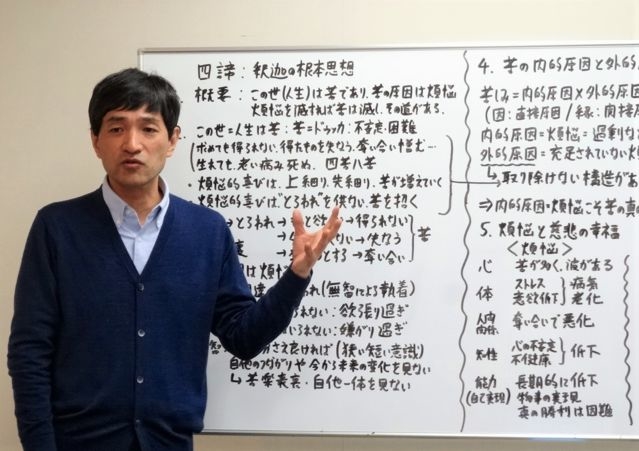 四諦：釈迦の根本思想
概要：この世(人生)は苦であり、苦の原因は煩悩
煩悩を滅すれば苦は滅し、その道がある。
この世=人生は苦：苦=ドゥッカ：不安定・困難
求めても得られない、得たものを失なう、奪い合い憎む…
生れても、老い病み死ぬ、四苦八苦
・煩悩的喜びは、上細り、先細り、苦が増えていく
・煩悩的喜びは"とらわれ"を供ない、苦を招く
とらわれ→ →得られない
→失なう
→奪い合い
苦
は煩悩
れ(無智による執着)
れない：欲張り過ぎ
いられない：嫌がり過ぎ
さえ良ければ(狭い短い意識)
自他のつながりや今から未来の変化を見ない
↳苦楽表裏・自他一体を見ない
4. 苦の内的原因と外的
苦しみ=内的原因×外的原
(因：直接原因/縁：間接
内的原因=煩悩=過剰な
外的原因=充足されていない
→取り除けない構造があ
⇒内的原因=煩悩こそ苦の真の
5. 煩悩と慈悲の幸福
<煩悩>
心 苦が多く、波がある
体 ストレス 老欲低下 }病気 老化
人間関係 奪い合いで悪化
知性 心の不安定 不健康 }低下
能力(自己実現) 長期的に低下
物事の実現
真の勝利は困難